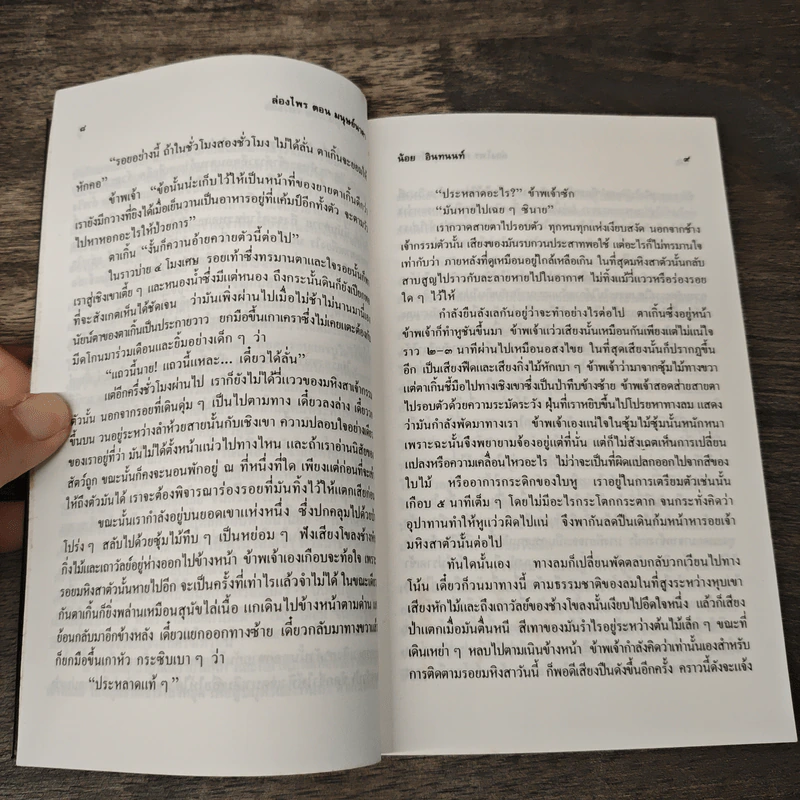 ๘
ล่องไพร ตอน มนุษย์
“รอยอย่างนี้ ถ้าในชั่วโมงสองชั่วโมง ไม่ได้ลั่น ตาเกิ้นจะยอมให้
หักคอ”
ข้าพเจ้า “ข้อนั้นน่ะเก็บไว้ให้เป็นหน้าที่ของยายตาเกิ้นดีกว่า
เรายังมีกวางที่ยิงได้เมื่อเย็นวานเป็นอาหารอยู่ที่แค้มป์อีกทั้งตัว จะตามวัว
ไปหาพอกอะไรให้ป่วยการ”
ตาเกิ้น “งั้นก็ความอ้ายควายตัวนี้ต่อไป”
ในราวบ่าย ๔ โมงเศษ รอยเท้าซึ่งทรมานตาและใจรอยนั้นก็พา
เราสู่เชิงเขาเตี้ย ๆ และหนองน้ำซึ่งมีแต่หนอง ถึงกระนั้นดินก็ยังเปียกพอ
ที่จะสังเกตเห็นได้ชัดเจน ว่ามันเพิ่งผ่านไปเมื่อไม่ช้าไม่นานมานี้เอง
นัยน์ตาของตาเกิ้นเป็นประกายวาว ยกมือขึ้นเกาคราซึ่งไม่เคยแตะต้องกับ
มีดโกนมาร่วมเดือนและยิ้มอย่างเด็ก ๆ ว่า
“แถวนี้นาย! แถวนี้แหละ... เดี๋ยวได้ลั่น”
แต่อีกครึ่งชั่วโมงผ่านไป เราก็ยังไม่ได้วี่แววของมหิงสาเจ้ากรรม
ตัวนั้น นอกจากรอยที่เดินดุ่ม ๆ เป็นไปตามทาง เดี๋ยวลงล่าง เดี๋ยว
ขึ้นบน วนอยู่ระหว่างลำห้วยสายนั้นกับเชิงเขา ความปลอบใจอย่างเดียว
ของเราอยู่ที่ว่า มันไม่ได้ตั้งหน้าแน่วไปทางไหน และถ้าเราอ่านนิสัยของ
สัตว์ถูก ขณะนั้นก็คงจะนอนพักอยู่ ณ ที่หนึ่งที่ใด เพียงแต่ก่อนที่จะทำ
ให้ถึงตัวมันได้ เราจะต้องพิจารณาร่องรอยที่มันทิ้งไว้ให้แตกเสียก่อน
ขณะนั้นเรากำลังอยู่บนยอดเขาแห่งหนึ่ง ซึ่งปกคลุมไปด้วย
โปร่ง ๆ สลับไปด้วยซุ้มไม้ทึบ ๆ เป็นหย่อม ๆ ฟังเสียงโขลงช้าง
กิ่งไม้และเถาวัลย์อยู่ห่างออกไปข้างหน้า ข้าพเจ้าเองเกือบจะท้อใจ เพราะ
รอยมหิงสาตัวนั้นหายไปอีก จะเป็นครั้งที่เท่าไรแล้วจำไม่ได้ ในขณะเดียว
กันตาเกิ้นก็ยิ่งพล่านเหมือนสุนัขไล่เนื้อ แกเดินไปข้างหน้าตามด่าน แล้ว
ย้อนกลับมาอีกข้างหลัง เดี๋ยวแยกออกทางซ้าย เดี๋ยวกลับมาทางขวาแล้ว
ก็ยกมือขึ้นเกาหัว กระซิบเบา ๆ ว่า
“ประหลาดแท้ ๆ”
น้อย อินทนนท์
๙
“ประหลาดอะไร?” ข้าพเจ้าซัก
“มันหายไปเฉย ๆ ซินาย”
เรากวาดสายตาไปรอบตัว ทุกหนทุกแห่งเงียบสงัด นอกจากช้าง
เจ้ากรรมตัวนั้น เสียงของมันรบกวนประสาทพอใช้ แต่อะไรก็ไม่ทรมานใจ
เท่ากับว่า ภายหลังที่ดูเหมือนอยู่ใกล้เหลือเกิน ในที่สุดมหิงสาตัวนั้นกลับ
สาบสูญไปราวกับละลายหายไปในอากาศ ไม่ทิ้งแม้วี่แววหรือร่องรอย
ใด ๆ ไว้ให้
กำลังยืนลังเลกันอยู่ว่าจะทำอย่างไรต่อไป ตาเกิ้นซึ่งอยู่หน้า
ข้าพเจ้าก็ทำหูชันขึ้นมา ข้าพเจ้าแว่วเสียงนั้นเหมือนกันเพียงแต่ไม่แน่ใจ
ราว ๒-๓ นาทีผ่านไปเหมือนอสงไขย ในที่สุดเสียงนั้นก็ปรากฏขึ้น
อีก เป็นเสียงฟืดและเสียงกิ่งไม้หักเบา ๆ ข้าพเจ้าว่ามาจากซุ้มไม้ทางขวา
แต่ตาเกิ้นชี้มือไปทางเชิงเขาซึ่งเป็นป่าทึบข้างซ้าย ข้าพเจ้าสอดส่ายสายตา
ไปรอบตัวด้วยความระมัดระวัง ฝุ่นที่เราหยิบขึ้นไปโปรยหาทางลม แสดง
ว่ามันกำลังพัดมาทางเรา ข้าพเจ้าเองแน่ใจในซุ้มไม้ซุ้มนั้นหนักหนา
เพราะฉะนั้นจึงพยายามจ้องอยู่แต่ที่นั่น แต่ก็ไม่สังเกตเห็นการเปลี่ยน
แปลงหรือความเคลื่อนไหวอะไร ไม่ว่าจะเป็นที่ผิดแปลกออกไปจากสีของ
ใบไม้ หรืออาการกระดิกของใบหู เราอยู่ในการเตรียมตัวเช่นนั้น
เกือบ ๕ นาทีเต็ม ๆ โดยไม่มีอะไรกระโตกกระตาก จนกระทั่งคิดว่า
อุปาทานทำให้หูแว่วผิดไปแน่ จึงพากันลดปืนเดินก้มหน้าหารอยเจ้า
มหิงสาตัวนั้นต่อไป
ทันใดนั้นเอง ทางลมก็เปลี่ยนพัดตลบกลับวกเวียนไปทาง
โน้น เดี๋ยวก็วนมาทางนี้ ตามธรรมชาติของลมในที่สูงระหว่างหุบเขา
เสียงหักไม้และดึงเถาวัลย์ของช้างโขลงนั้นเงียบไปอึดใจหนึ่ง แล้วก็เสียง
ป่าแตกเมื่อมันตื่นหนี สีเทาของมันรำไรอยู่ระหว่างต้นไม้เล็ก ๆ ขณะที่
เดินเหย่า ๆ หลบไปตามเนินข้างหน้า ข้าพเจ้ากำลังคิดว่าเท่านั้นเองสำหรับ
การติดตามรอยมหิงสาวันนี้ ก็พอดีเสียงปืนดังขึ้นอีกครั้ง คราวนี้ดังจะแจ้ง